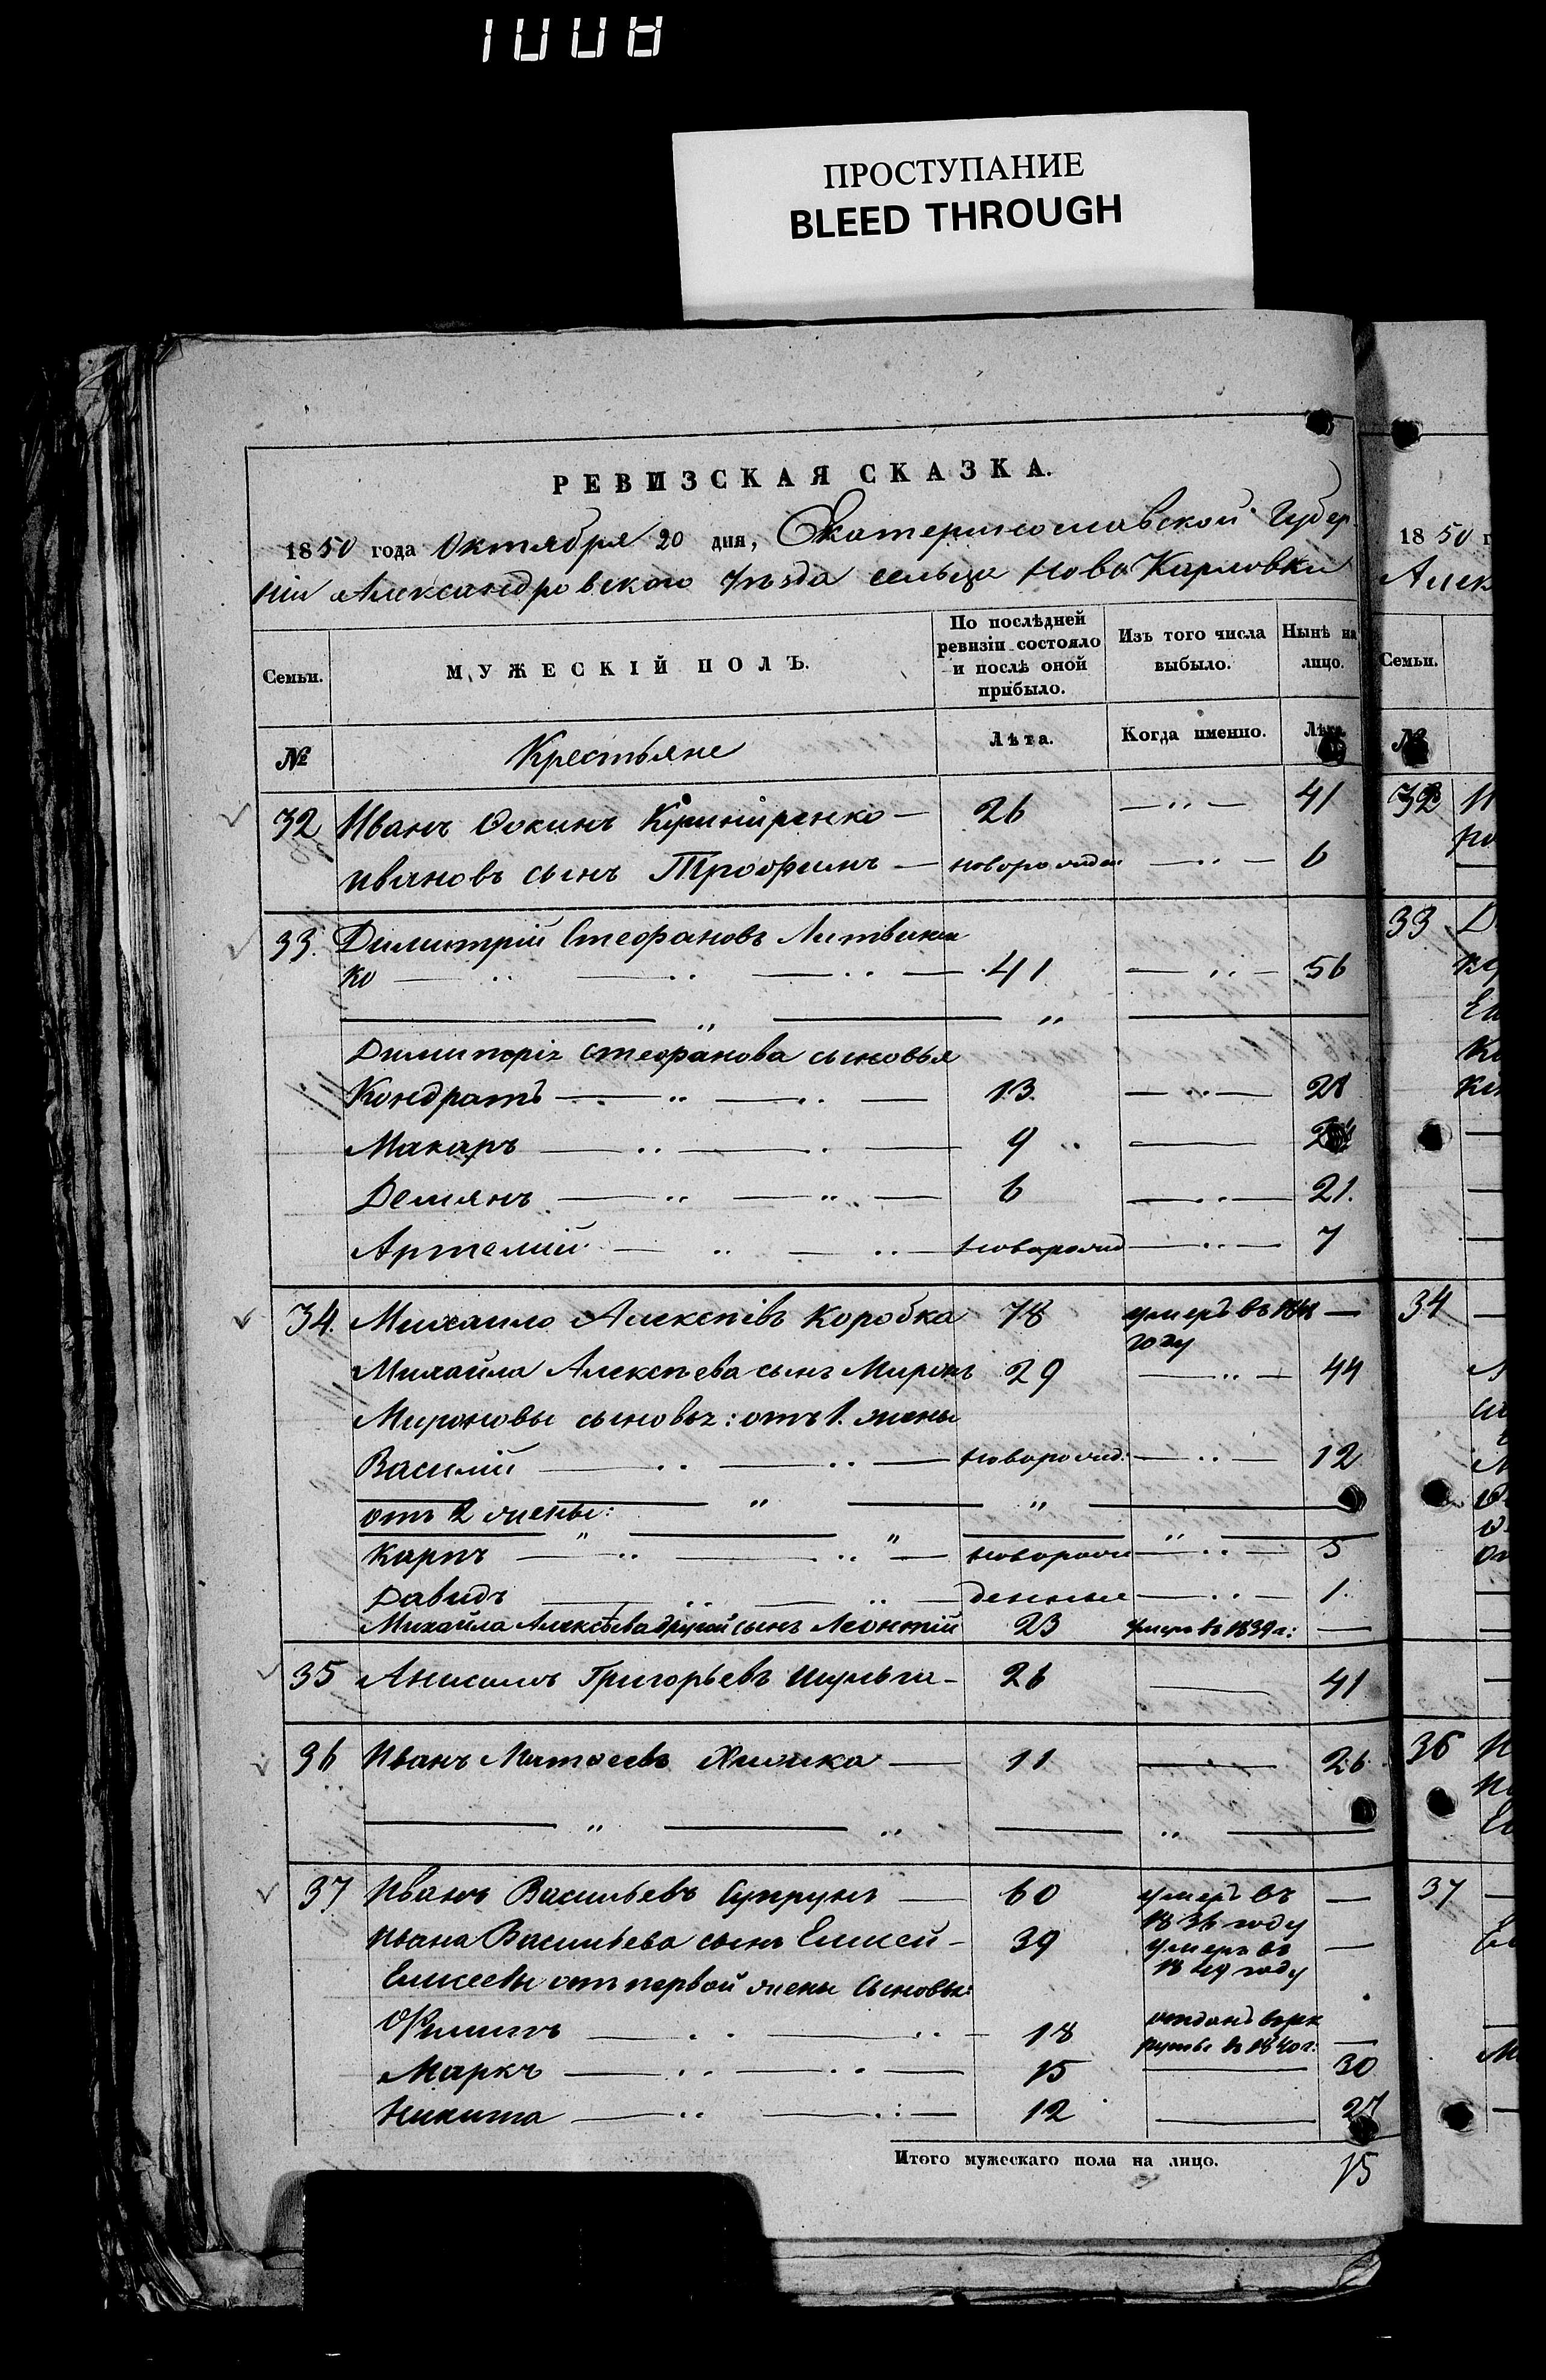 1008
ПРОСТУПАНИЕ
BLEED THROUGH
РЕВИЗСКАЯ СКАЗКА.
1850 года Октября 20 дня, Екатеринославской Губер
ніи Александровского Уѣзда сельца Ново Карловки
Семьи.
МУЖЕСКІЙ ПОЛЪ.
По послѣдней ревизіи состояло и послѣ оной прибыло.
Изъ того числа выбыло.
Нынѣ на лицо.
№
Крестьяне
Лѣта.
Когда именно.
Лѣта.
32 Иванъ Фокинъ 26 — " — 41
Ивановъ сынъ Трофимъ — новорожден — " — 6
33. Димитрій Стефановъ Литвинен
ко — " — " — " — 41 — " — 56
Димитрія Стефанова сыновья
Кондратъ — " — " — 13. — " — 28
Макаръ — " — " — 9 " —
Демянъ — " — " — 6 — " — 21.
Артемій — " — " — новорожд — " — 7
34. Михайло Алексѣевъ Коробка 78 умеръ въ 1841 —
году
Михайла Алексѣева сынъ Миронъ 29 — " — 44
Мироновы сыновья: отъ 1. жены
Василій — " — " — новорожд: — " — 12
отъ 2 жены:
Карпъ — " — " — новорож — " — 5
Давидъ — " — " денные — " — 1.
Михайла Алексѣева другой сынъ Леонтій 23 умеръ въ 1839 г: —
35 Анисимъ Григорьевъ Шульга — 26 — 41
36 Иванъ Матвеевъ — 11 — 26.
37 Иванъ Васильевъ Супрунъ — 60 умеръ въ —
1836 году
Ивана Васильева сынъ Елисей — 39 умеръ въ —
1849 году
Елисеевы отъ первой жены сыновья:
Филипъ — " — " — 18 отданъ въ рек
руты въ 1840 г: —
Маркъ — " — " — 15 — 30
Никита — " — " — 12 — 27
Итого мужескаго пола на лицо. 15
1850 г
Алек
Семьи.
№
32
33
34
36
37